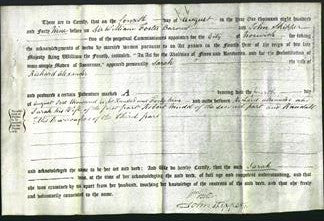 These are to Certify, that on the fourth day of August in the year One thousand eight hundred
and forty nine before us Sir William Foster Baronet and John Skipper
two of the perpetual Commissioners appointed for the City of Norwich for taking
the acknowledgments of deeds by married women pursuant to an Act passed in the Fourth Year of the reign of his late
Majesty King William the Fourth, intituled "An Act for the Abolition of Fines and Recoveries, and for the Substitution of
more simple Modes of Assurance," appeared personally Sarah the wife of
Richard Alexander
and produced a certain Indenture marked A bearing date the fourth day of
August One thousand eight hundred and forty nine and made between Richard Alexander and
Sarah his Wife of the first part Robert of the second part and
of the third part
and acknowledged the same to be her act and deed; And We do hereby Certify, that the said Sarah
was, at the time of her acknowledging the said deed, of full age and competent understanding, and that
she was examined by us apart from her husband, touching her knowledge of the contents of the said deed, and that she freely
and voluntarily consented to the same.
John Skipper